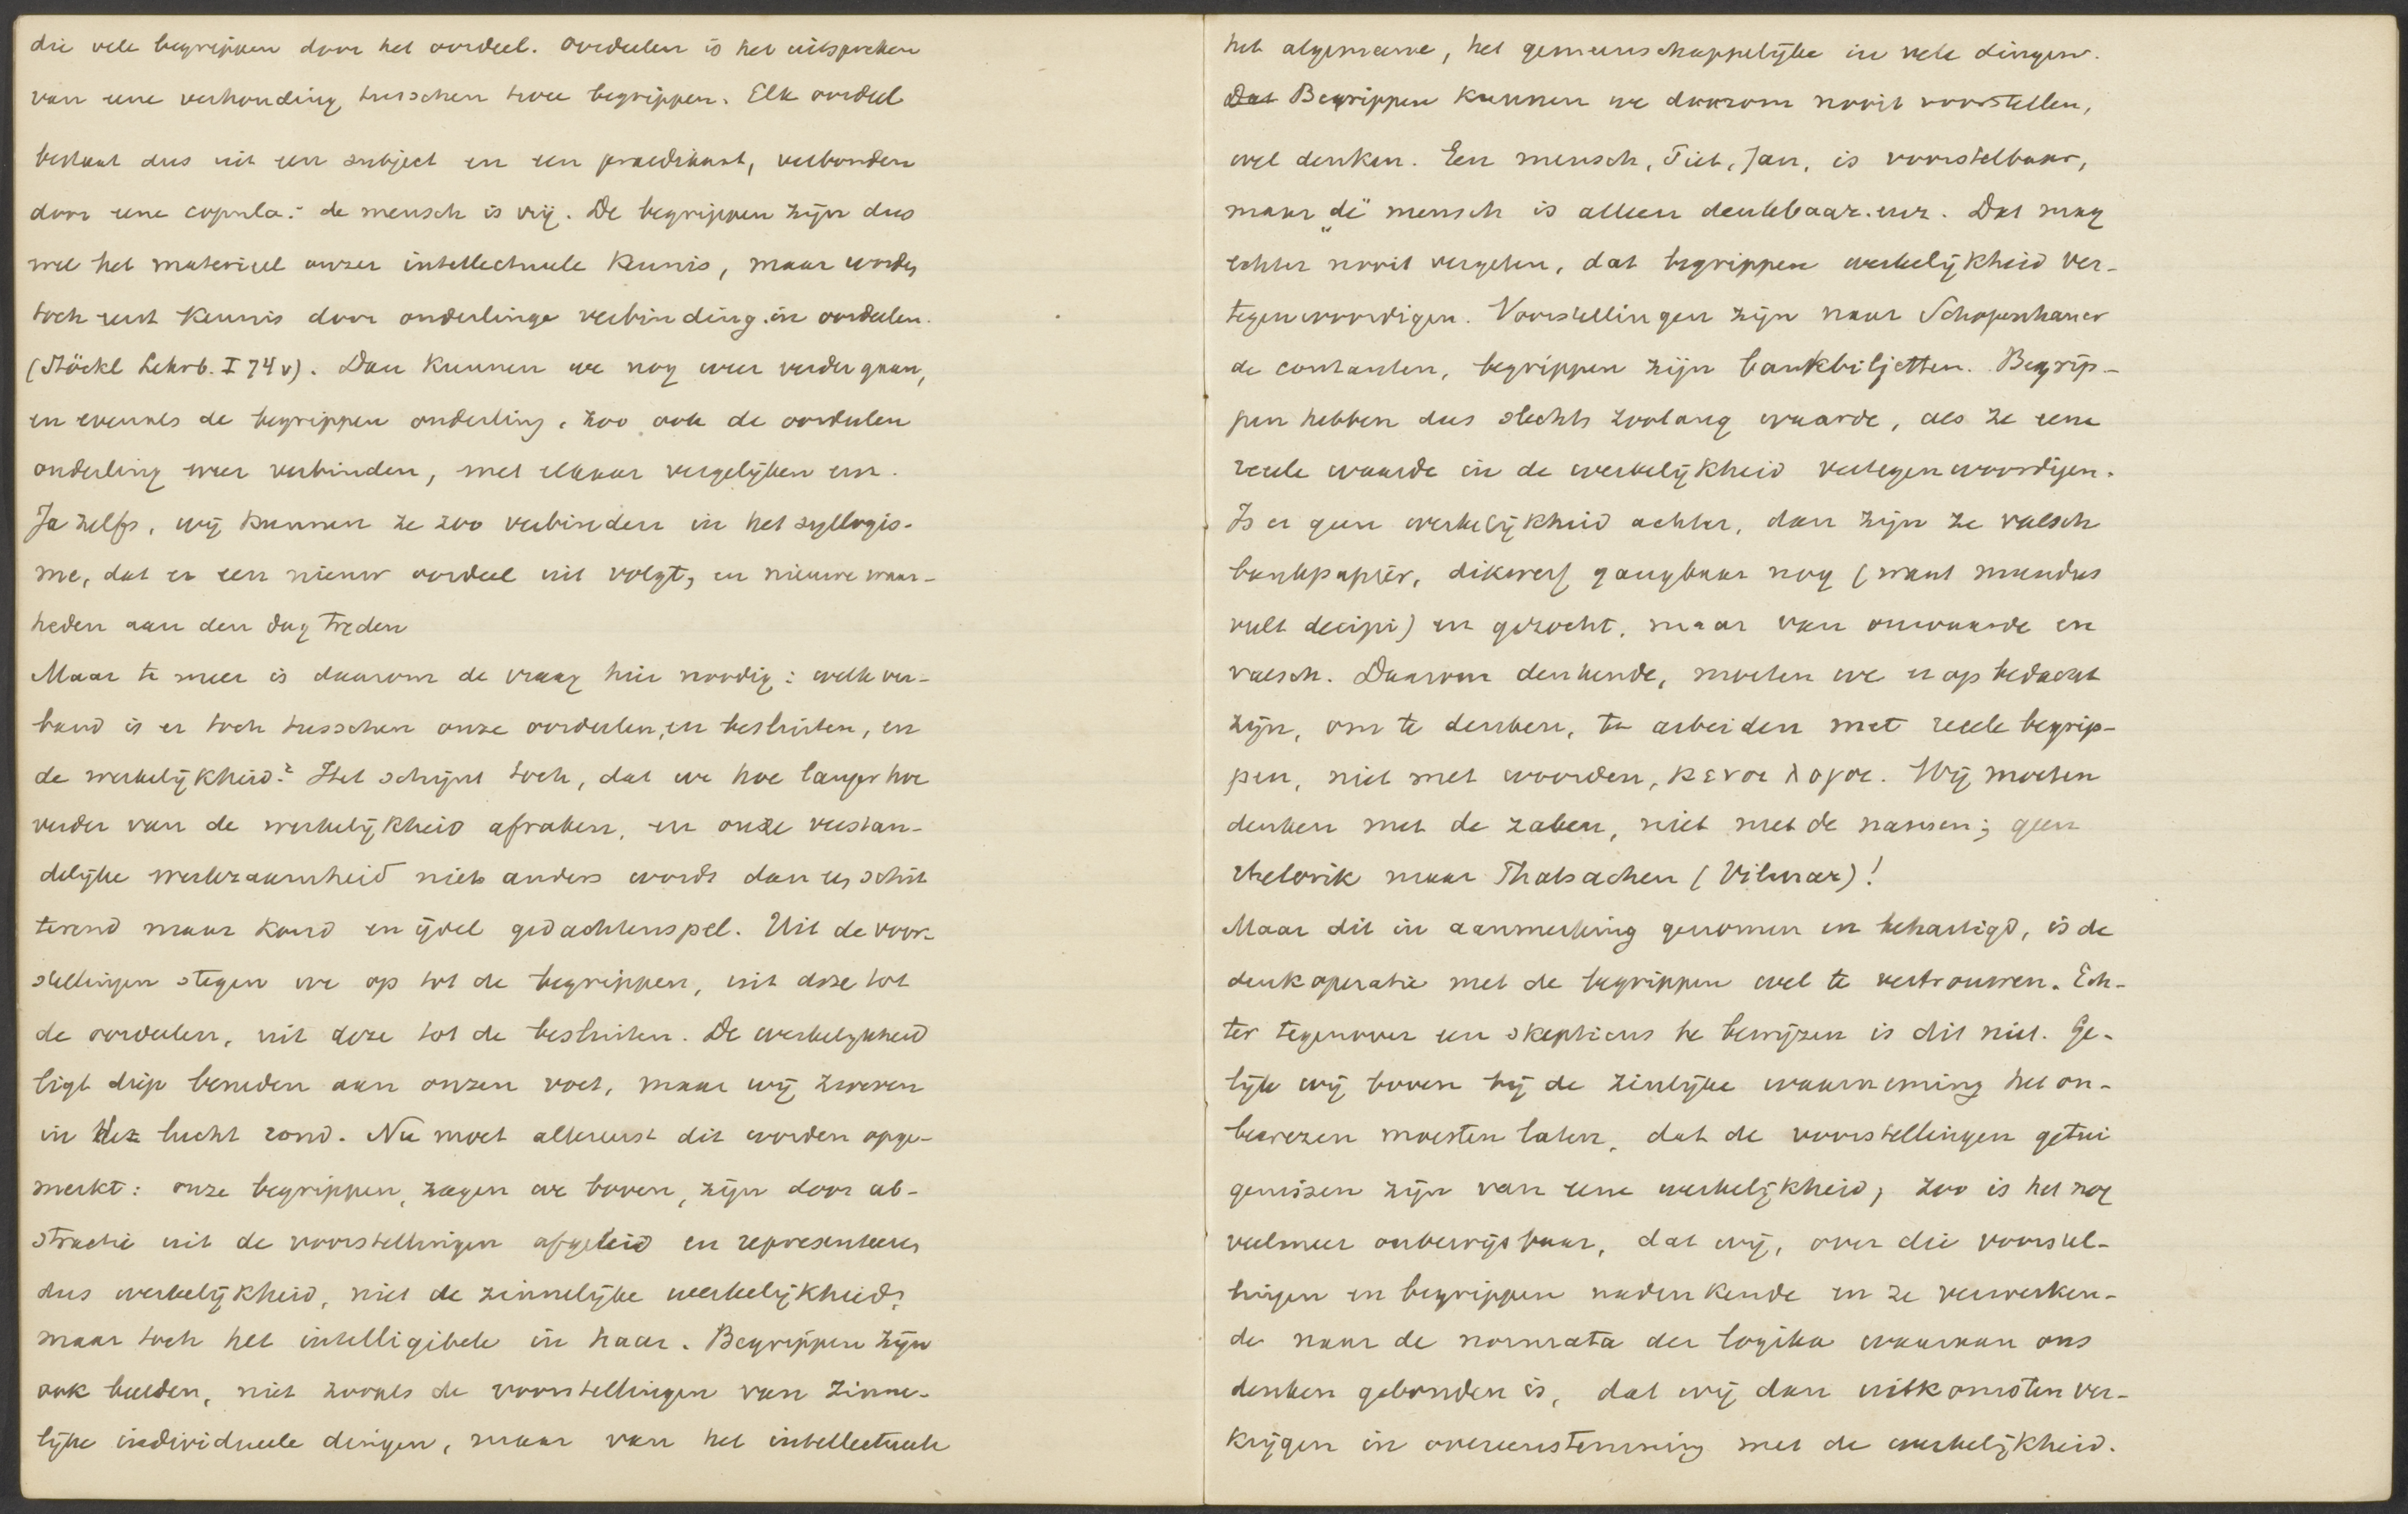 die vele begrippen door het oordeel. Oordeelen is het uitspreken
van eene verhouding tusschen twee begrippen. Elk oordeel
bestaat dus uit een subject en een praedikaat, verbonden
door eene copula: de mensch is vrij. De begrippen zijn dus
wel het materieel onzer intellectueele kennis, maar worden
toch eerst kennis door onderlinge verbinding in oordeelen.
(Stöckl Lehrb. I 74 v). Dan kunnen we nog weer verder gaan,
en evenals de begrippen onderling, zoo ook de oordeelen
onderling weer verbinden, met elkaar vergelijken enz.
Ja zelfs, wij kunnen ze zoo verbinden in het syllogis-
me, dat er een nieuw oordeel uit volgt, en nieuwe waar-
heden aan den dag treden
Maar te meer is daarom de vraag hier noodig: welk ver-
band is er toch tusschen onze oordeelen, en besluiten, en
de werkelijkheid? Het schijnt toch, dat we hoe langer hoe
verder van de werkelijkheid afraken, en onze verstan-
delijke werkzaamheid niets anders wordt dan een schit
terend maar koud en ijdel gedachtenspel. Uit de voor-
stellingen stegen we op tot de begrippen, uit deze tot
de oordeelen, uit deze tot de besluiten. De werkelijkheid
ligt diep beneden aan onzen voet, maar wij zweven
in de lucht rond. Nu moet allereerst dit worden opge-
merkt: onze begrippen, zagen we boven, zijn door ab-
stractie uit de voorstellingen afgeleid en representeeren
dus werkelijkheid, niet de zinnelijke werkelijkheid,
maar toch het intelligibele in haar. Begrippen zijn
ook beelden, niet zooals de voorstellingen van zinne-
lijke individueele dingen, maar van het intellectueele
het algemeene, het gemeenschappelijke in vele dingen.
Dat Begrippen kunnen we daarom nooit voorstellen,
wel denken. Een mensch, Piet, Jan, is voorstelbaar,
maar „de" mensch is alleen denkbaar. enz. Dat mag
echter nooit vergeten, dat begrippen werkelijkheid ver-
tegenwoordigen. Voorstellingen zijn naar Schopenhauer
de contanten, begrippen zijn bankbiljetten. Begrip-
pen hebben dus slechts zoolang waarde, als ze eene
reele waarde in de werkelijkheid vertegenwoordigen.
Is er geen werkelijkheid achter, dan zijn ze valsch
bankpapier, dikwerf gangbaar nog (want mundus
vult decipi) en gezocht, maar van onwaarde en
valsch. Daarom denkende, moeten we er op bedacht
zijn, om te denken, te arbeiden met reele begrip-
pen, niet met woorden, κενοι λογοι. Wij moeten
denken met de zaken, niet met de namen; geen
rhetorik maar Thatsachen (Vilmar)!
Maar dit in aanmerking genomen en behartigd, is de
denkoperatie met de begrippen wel te vertrouwen. Ech-
ter tegenover een skepticus te bewijzen is dit niet. Ge-
lijk wij boven bij de zinlijke waarneming het on-
bewezen moesten laten, dat de voorstellingen getui
genissen zijn van eene werkelijkheid, zoo is het nog
veelmeer onbewijsbaar, dat wij, over die voorstel-
lingen en begrippen nadenkende en ze verwerken-
de naar de normata der logika waaraan ons
denken gebonden is, dat wij dan uitkomsten ver-
krijgen in overeenstemming met de werkelijkheid.